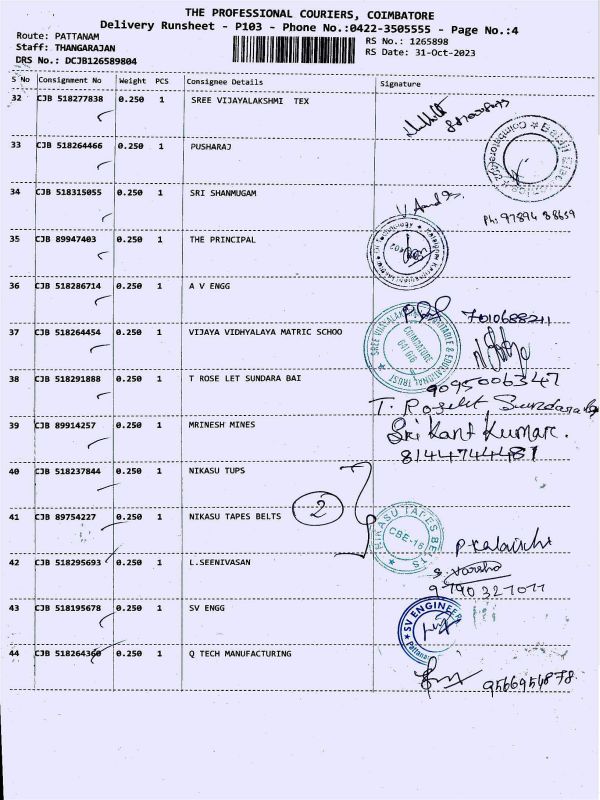 THE PROFESSIONAL COURIERS, COIMBATORE
Delivery Runsheet - P103 - Phone No.:0422-3505555 - Page No.:4
Route: PATTANAM
RS No.: 1265898
Staff: THANGARAJAN
RS Date: 31-Oct-2023
DRS No.: DCJB126589804
S No Consignment No Weight PCS Consignee Details Signature
32 CJB 518277838 0.250 1 SREE VIJAYALAKSHMI TEX
33 CJB 518264466 0.250 1 PUSHARAJ
34 CJB 518315055 0.250 1 SRI SHANMUGAM
Ph: 97894 38659
35 CJB 89947403 0.250 1 THE PRINCIPAL
36 CJB 518286714 0.250 1 A V ENGG
7010688211
37 CJB 518264454 0.250 1 VIJAYA VIDHYALAYA MATRIC SCHOO
SREE VIJAYALAKSHMI CHARITABLE & EDUCATIONAL TRUST
COIMBATORE
641 016
38 CJB 518291888 0.250 1 T ROSE LET SUNDARA BAI
9095006347
T. Roselet Sundarabai
39 CJB 89914257 0.250 1 MRINESH MINES
Sri Kant Kumar.
8144744487
40 CJB 518237844 0.250 1 NIKASU TUPS
2
41 CJB 89754227 0.250 1 NIKASU TAPES BELTS
NIKASU TAPES BELTS
CBE-16
42 CJB 518295693 0.250 1 L.SEENIVASAN
S. Varsha
9790327077
43 CJB 518195678 0.250 1 SV ENGG
SV ENGINEER
Pattanam
44 CJB 518264360 0.250 1 Q TECH MANUFACTURING
9566954878.